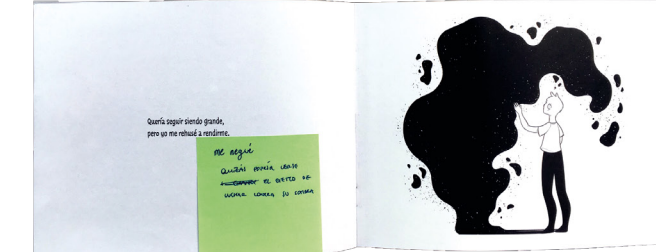 Quería seguir siendo grande,
pero yo me rehusé a rendirme.
me negué
QUIZÁS PODRÍA USARSE
EL EFECTO DE
LUCHAR CONTRA SU